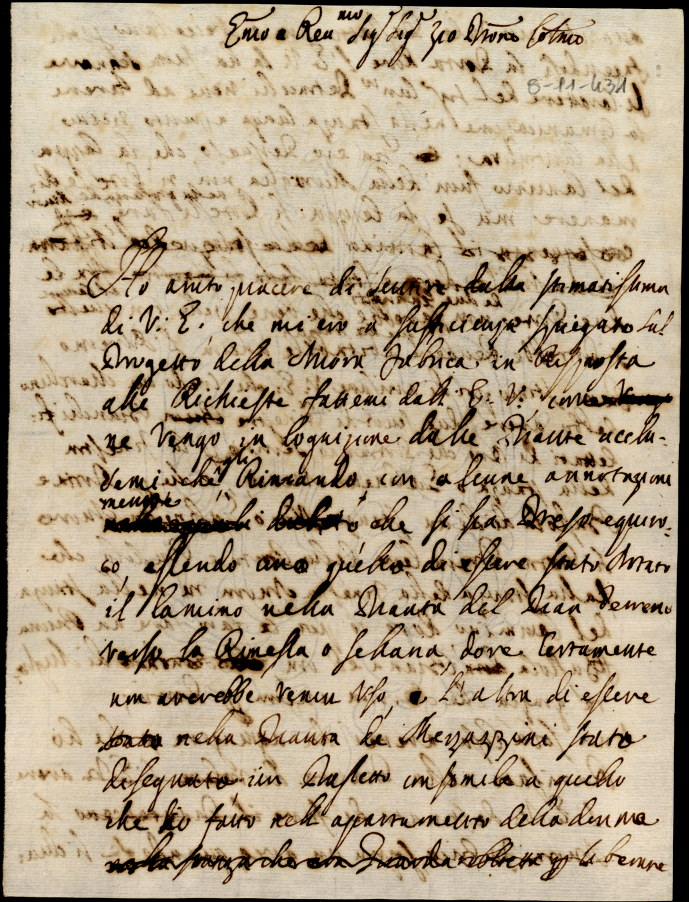 Emo e Reu.mo Sig.r Sig.r Zio Prone Colmo
8-11-431
Ho auuto piacere di sentire dalla stimatissima
di V. E. che mi ero a sufficienza spiegato sul
Progetto della Nuova Fabrica in Risposta
alle Richieste fattemi dall E. V. come
ne vengo in cognizione dalle Piante acclu-
semi che gli Rimando con alcune annotazioni
mentre che si sia preso equiuo-
co essendo uno quello di essere stato Notato
il Camino nella Pianta del Pian Terreno
verso la Rimessa o sellaria dove certamente
non averebbe veruu uso, e L'altro di essere
stato nella Pianta de Mezzazzini stato
disegnato un consimile a quello
che ho fatto nell apartamento della
nella stanza che